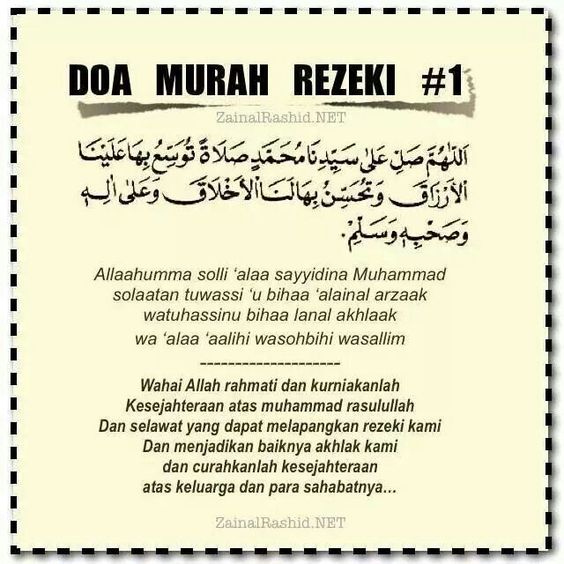 DOA MURAH REZEKI #1
ZainalRashid.NET
اَللّٰهُمَّ صَلِّ عَلٰى سَيِّدِنَا مُحَمَّدٍ صَلَاةً تُوَسِّعُ بِهَا عَلَيْنَا
الْاَرْزَاقَ وَتُحَسِّنُ بِهَا لَنَا الْاَخْلَاقَ وَعَلٰى اٰلِهٖ
وَصَحْبِهٖ وَسَلِّمْ.
Allaahumma solli ‘alaa sayyidina Muhammad
solaatan tuwassi ‘u bihaa ‘alainal arzaak
watuhassinu bihaa lanal akhlaak
wa ‘alaa ‘aalihi wasohbihi wasallim
--------------------
Wahai Allah rahmati dan kurniakanlah
Kesejahteraan atas muhammad rasulullah
Dan selawat yang dapat melapangkan rezeki kami
Dan menjadikan baiknya akhlak kami
dan curahkanlah kesejahteraan
atas keluarga dan para sahabatnya...
ZainalRashid.NET